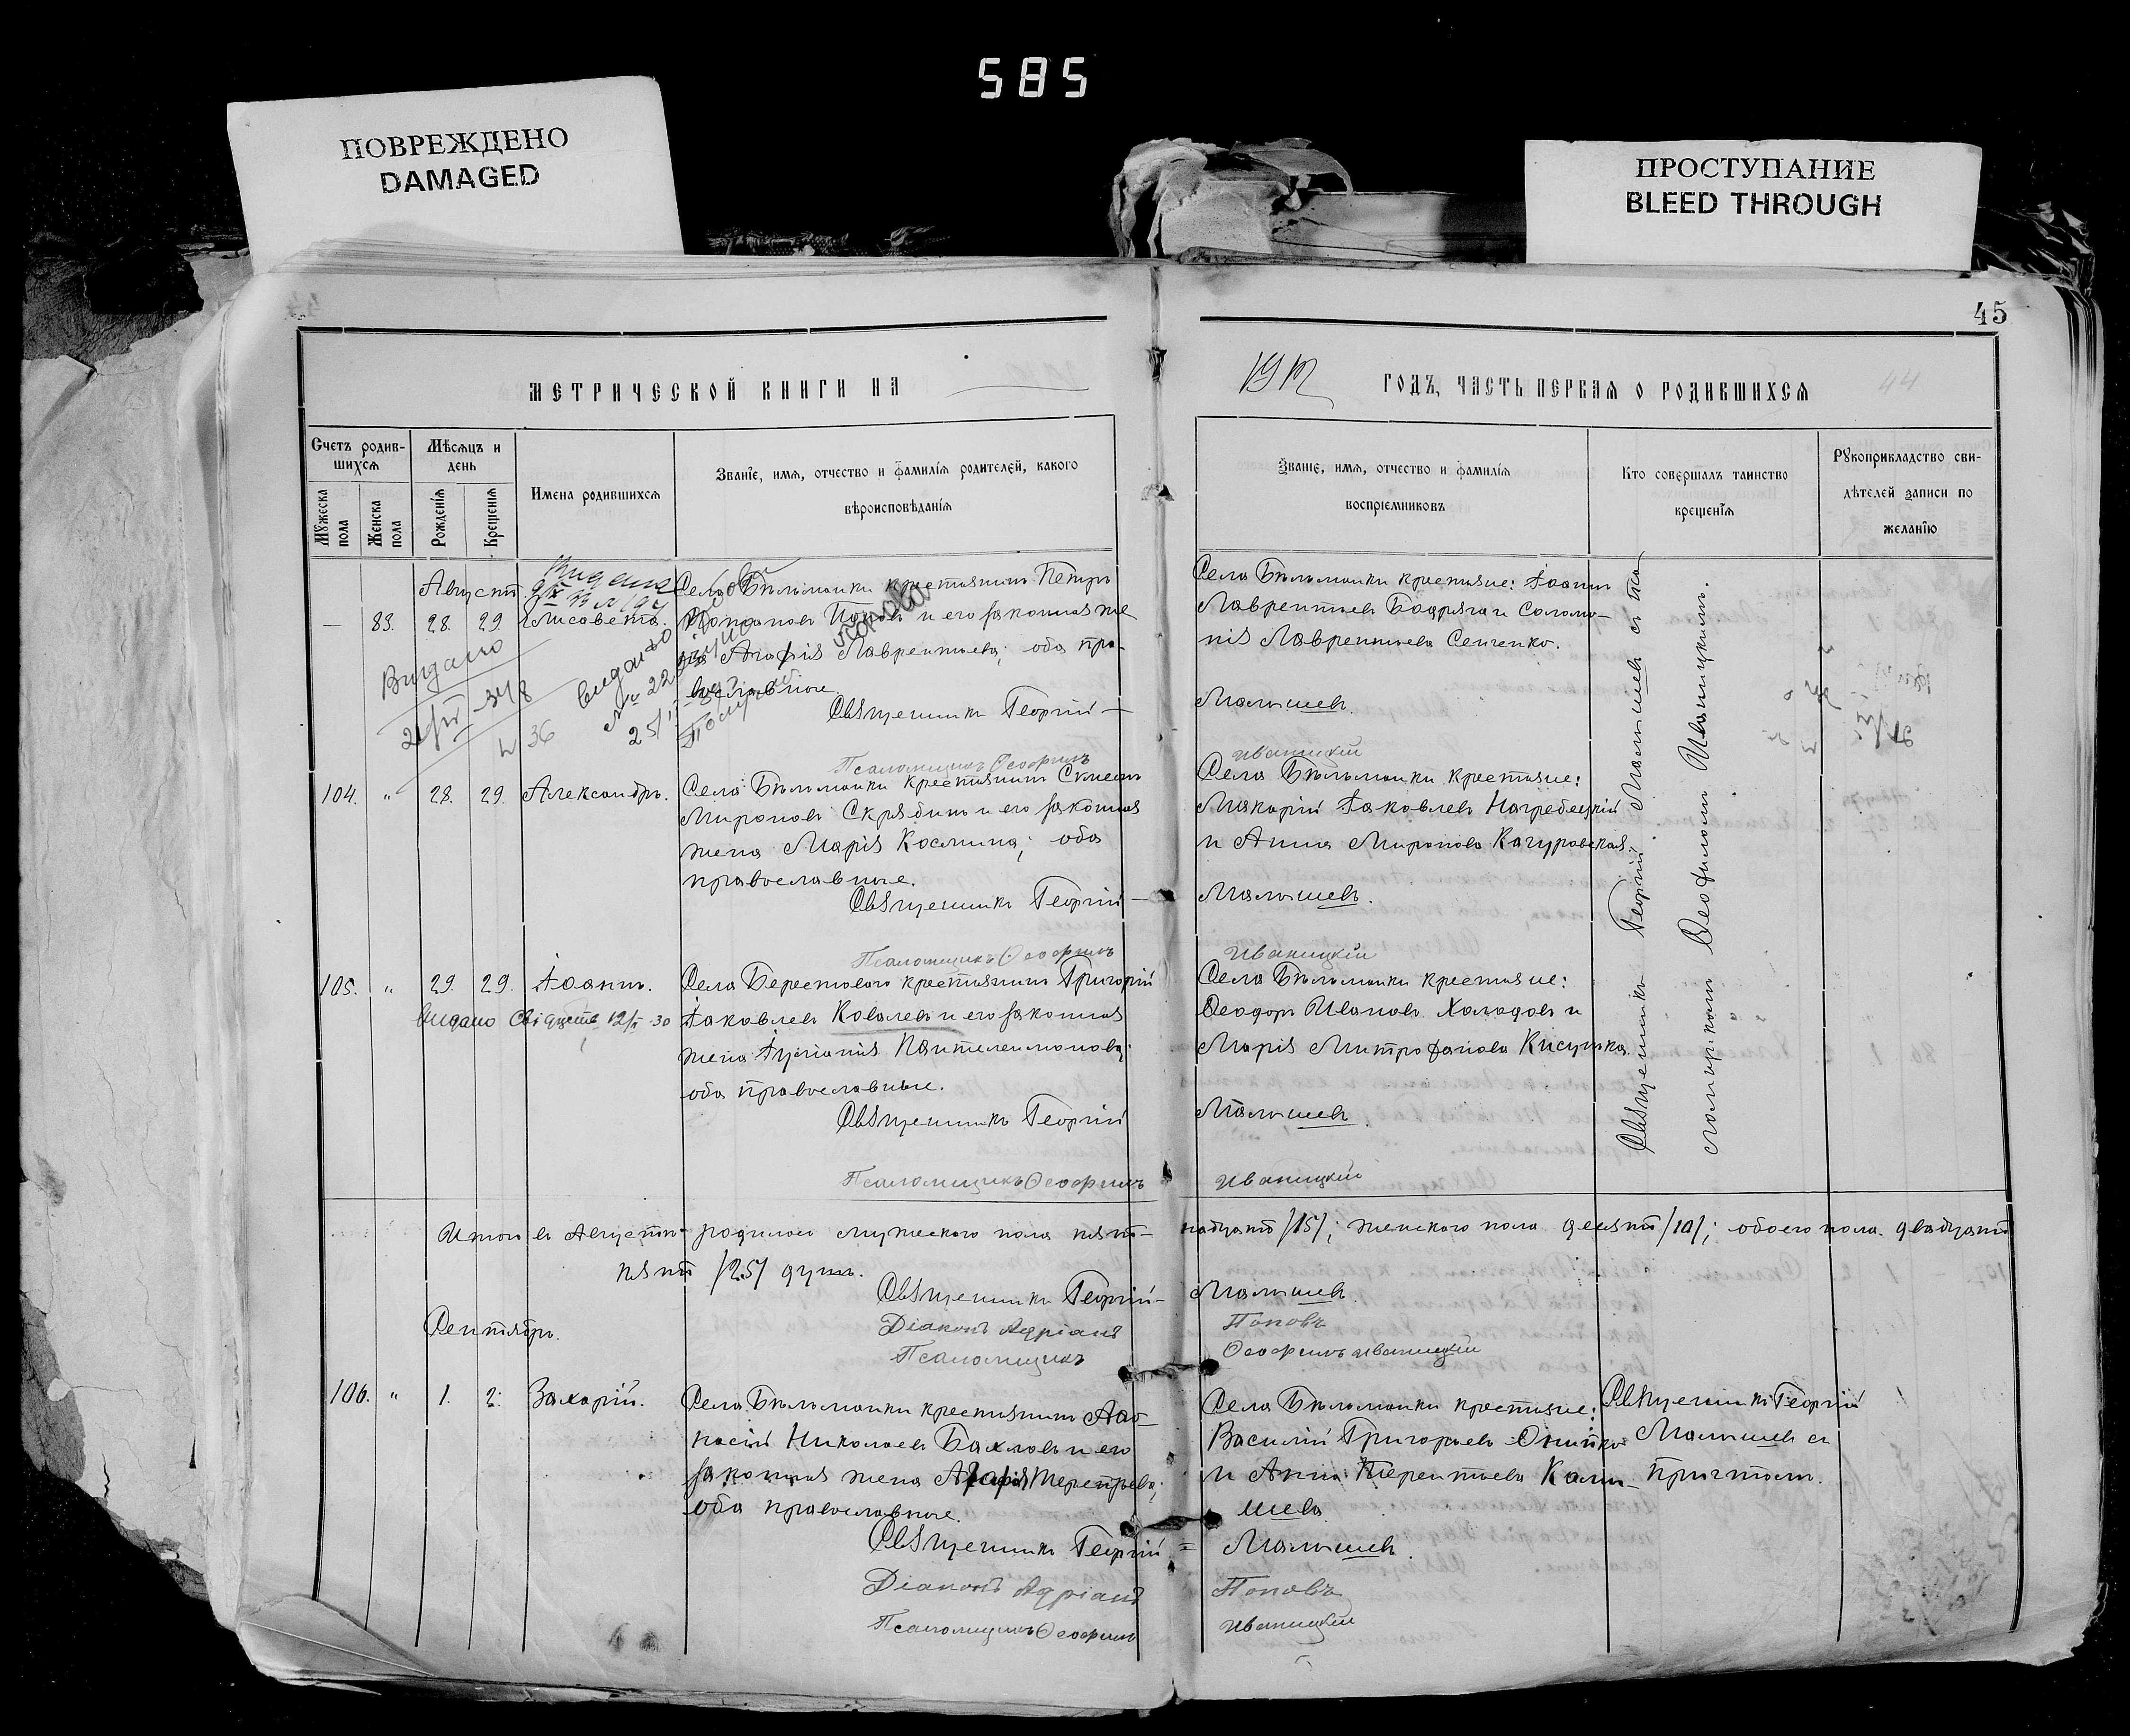 585
ПОВРЕЖДЕНО
DAMAGED
ПРОСТУПАНИЕ
BLEED THROUGH
45
МЕТРИЧЕСКОЙ КНИГИ НА
1912 ГОДЪ, ЧАСТЬ ПЕРВАЯ О РОДИВШИХСЯ
Счетъ родив-
шихся
Мужеска пола
Женска пола
Мѣсяцъ и
день
Рожденія
Крещенія
Имена родившихся
Званіе, имя, отчество и фамилія родителей, какого
вѣроисповѣданія
Званіе, имя, отчество и фамилія
воспріемниковъ
Кто совершалъ таинство
крещенія
Рукоприкладство сви-
дѣтелей записи по
желанію
Августъ
83. 28. 29. Елисаветъ.
Видано
36
видано
№ 22
25/
Села Бѣльманки крестьянинъ Петръ
Поповъ и его законная же
на Агафія Лаврентьева; оба пра-
вославные.
Священникъ Георгій
Псаломщикъ Ѳеофилъ
Села Бѣльманки крестьяне: Іоаннъ
Лаврентьевъ Бодряга и Соломо-
нія Лаврентьева Сенченко.
Малышевъ.
Иваницкій
104. " 28. 29. Александръ.
Села Бѣльманки крестьянинъ Симеонъ
Мироновъ Скрябинъ и его законная
жена Марія Космина; оба
православные.
Священникъ Георгій —
Псаломщикъ Ѳеофилъ
Села Бѣльманки крестьяне:
Макарій Іаковлевъ Нагребецкій
и Анна Миронова Качуровская.
Малышевъ.
Иваницкій
105. " 29. 29. Іоаннъ.
видано Свідцтв 12/ 30
Села Берестового крестьянинъ Григорій
Іаковлевъ Ковалевъ и его законная
жена Іуліанія Пантелеимонова;
оба православные.
Священникъ Георгій
Псаломщикъ Ѳеофилъ
Села Бѣльманки крестьяне:
Ѳеодоръ Ивановъ Холодовъ и
Марія Митрофанова Кисулька.
Малышевъ.
Иваницкій
Священникъ Георгій Малышевъ съ пса-
ломщикомъ Ѳеофиломъ Иваницкимъ.
Итого въ Августѣ родилось мужеского пола пят- надцать /15/; женского пола десять /10/; обоего пола двадцать
пять /25/ душъ.
Священникъ Георгій — Малышевъ.
Діаконъ Адріанъ Поповъ
Псаломщикъ Ѳеофилъ Иваницкій
Сентябрь.
106. " 1. 2. Захарій.
Села Бѣльманки крестьянинъ Аѳа-
насій Николаевъ Бахловъ и его
законная жена Агафія Терентьева;
оба православные.
Священникъ Георгій =
Діаконъ Адріанъ
Псаломщикъ Ѳеофилъ
Села Бѣльманки крестьяне:
Василій Григорьевъ Онипко
и Анна Терентьева Калы-
шева
Малышевъ.
Поповъ
Иваницкій
Священникъ Георгій
Малышевъ съ
причтомъ.